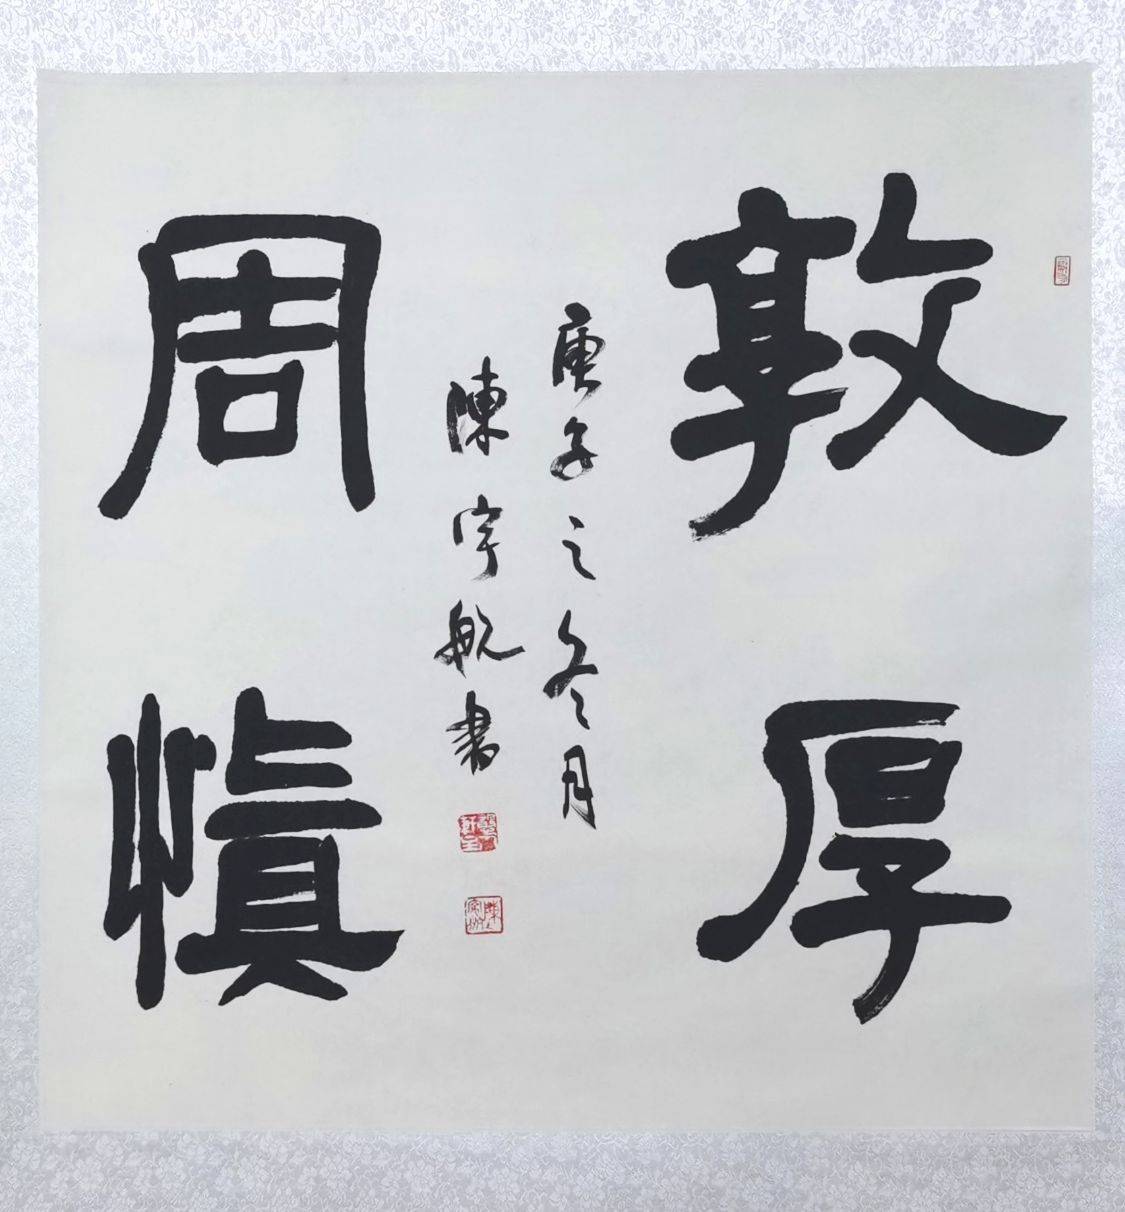 敦厚
周慎
庚子之冬月
陳宇航書